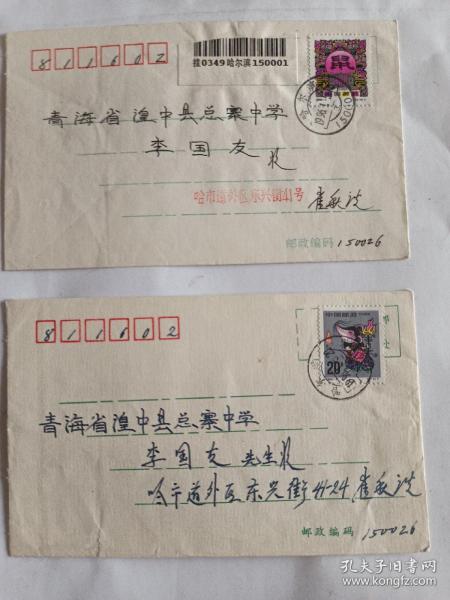 811602
挂0349哈尔滨150001
鼠
青海省湟中县总寨中学
李国友 收
哈市道外区东兴街41号
邮政编码 150026
811602
中国邮政
20分
青海省湟中县总寨中学
李国友 先生收
哈市道外区东兴街41-24
邮政编码 150026
孔夫子旧书网
www.kongfz.com